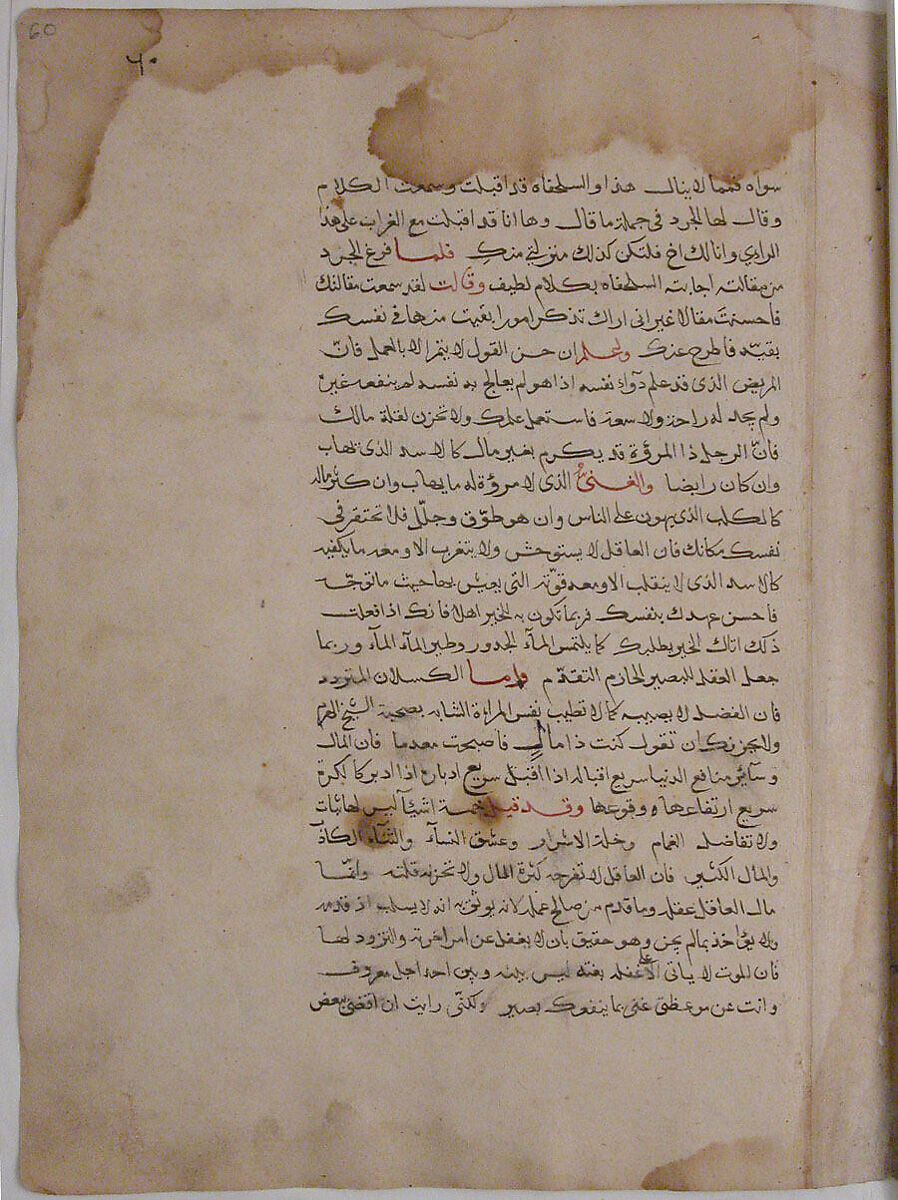 60
٦٠
سواه فمما لا ينال هذا والسلحفاه قد اقبلت وسمعت الكلام
وقال لها الجرد فى جملة ما قال وها انا قد اقبلت مع الغراب على هذا
الراي وانا لك اخ فلتكن كذلك منزلتى منك فلما فرغ الجرد
من مقالته اجابته السلحفاه بكلام لطيف وقالت لقد سمعت مقالتك
فاحسنت مقالا غير انى اراك تذكر امورا بقيت منها فى نفسك
بقيّة فاطرح عنك واعلم ان حسن القول لا يتم الا بالعمل فانّ
المريض الذى قد علم دوآء نفسه اذا هو لم يعالج به نفسه لم ينفعه غيره
ولم يجد له راحة ولا سعة فاستعمل علمك ولا تحزن لقلة مالك
فانّ الرجل ذا المروّة قد يكرم بغير مال كالاسد الذى يهاب
وان كان رابضا والغنى الذى لا مروّة له ما يهاب وان كثر ماله
كالكلب الذى يهون على الناس وان هو طوّق وجلّل فلا تحتقر فى
نفسك مكانك فان العاقل لا يستوحش ولا يتغرب الا ومعه ما يكفيه
كالاسد الذى لا ينقلب الا ومعه قوّته التى يعيش بها حيث ما توجّه
فاحسن عهدك بنفسك فربما تكون به للخير اهلا فانك اذا فعلت
ذلك اتاك الخير يطلبك كما يلتمس المآء الحدور وطير المآء المآء وربما
جعل العقل للبصير الحازم التقدّم واما الكسلان المتردد
فان الفضل لا يصيبه كما لا تطيب نفس المراة الشابه بصحبة الشيخ الهرم
ولا يحزنك ان تقول كنت ذا مال فاصبحت معدما فان المال
وسائر منافع الدنيا سريع اقباله اذا اقبل سريع ادباره اذا ادبر كالكرة
سريع ارتفاعها ووقوعها وقد قيل خمسة اشيآ ليس لها ثبات
ولا تفاضل الغمام وخلة الاشرار وعشق النسآء والثنآء الكاذ
والمال الكثير فان العاقل لا تفرحه كثرة المال ولا تحزنه قلته وانّما
مال العاقل عقله وما قدم من صالح عمله لانه يوثق به انه لا يسلب اذ قدمه
ولا يؤاخذ بما لم يجن وهو حقيق بان لا يغفل عن امر اخرته والتزود لها
فان الموت لا ياتى الا على غفله بغته ليس بينه وبين احد اجل معروف
وانت عن موعظتى غنى بما ينفعك بصير ولكنّى رايت ان اقضى بعض